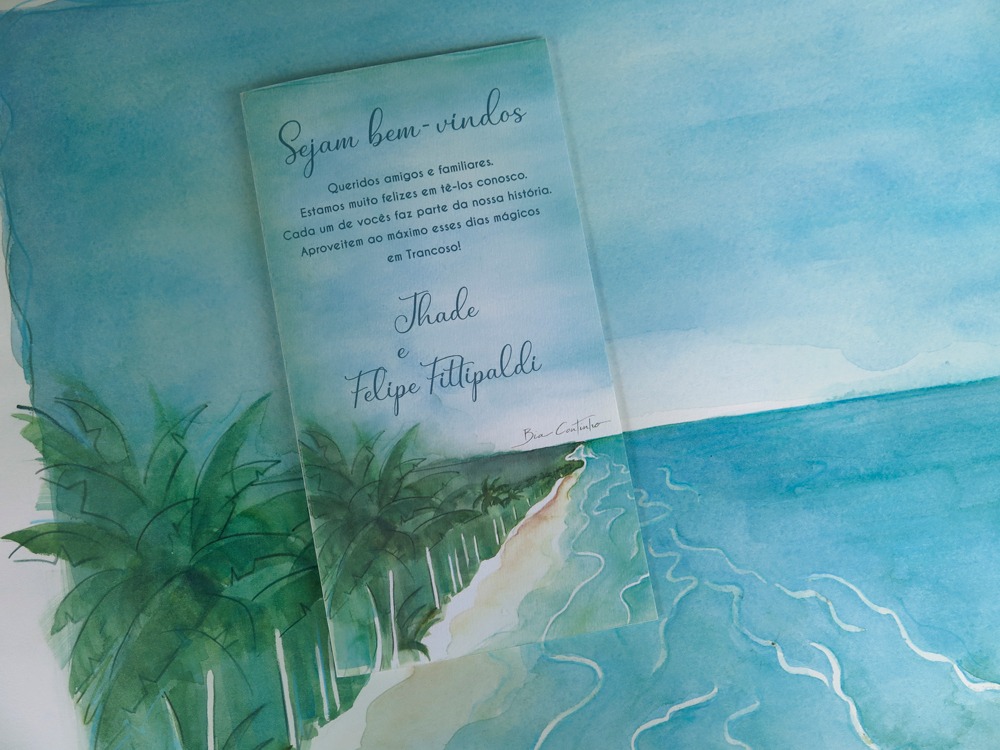 Sejam bem-vindos
Queridos amigos e familiares.
Estamos muito felizes em tê-los conosco.
Cada um de vocês faz parte da nossa história.
Aproveitem ao máximo esses dias mágicos
em Trancoso!
Thade
e
Felipe Fittipaldi
Bia Continho